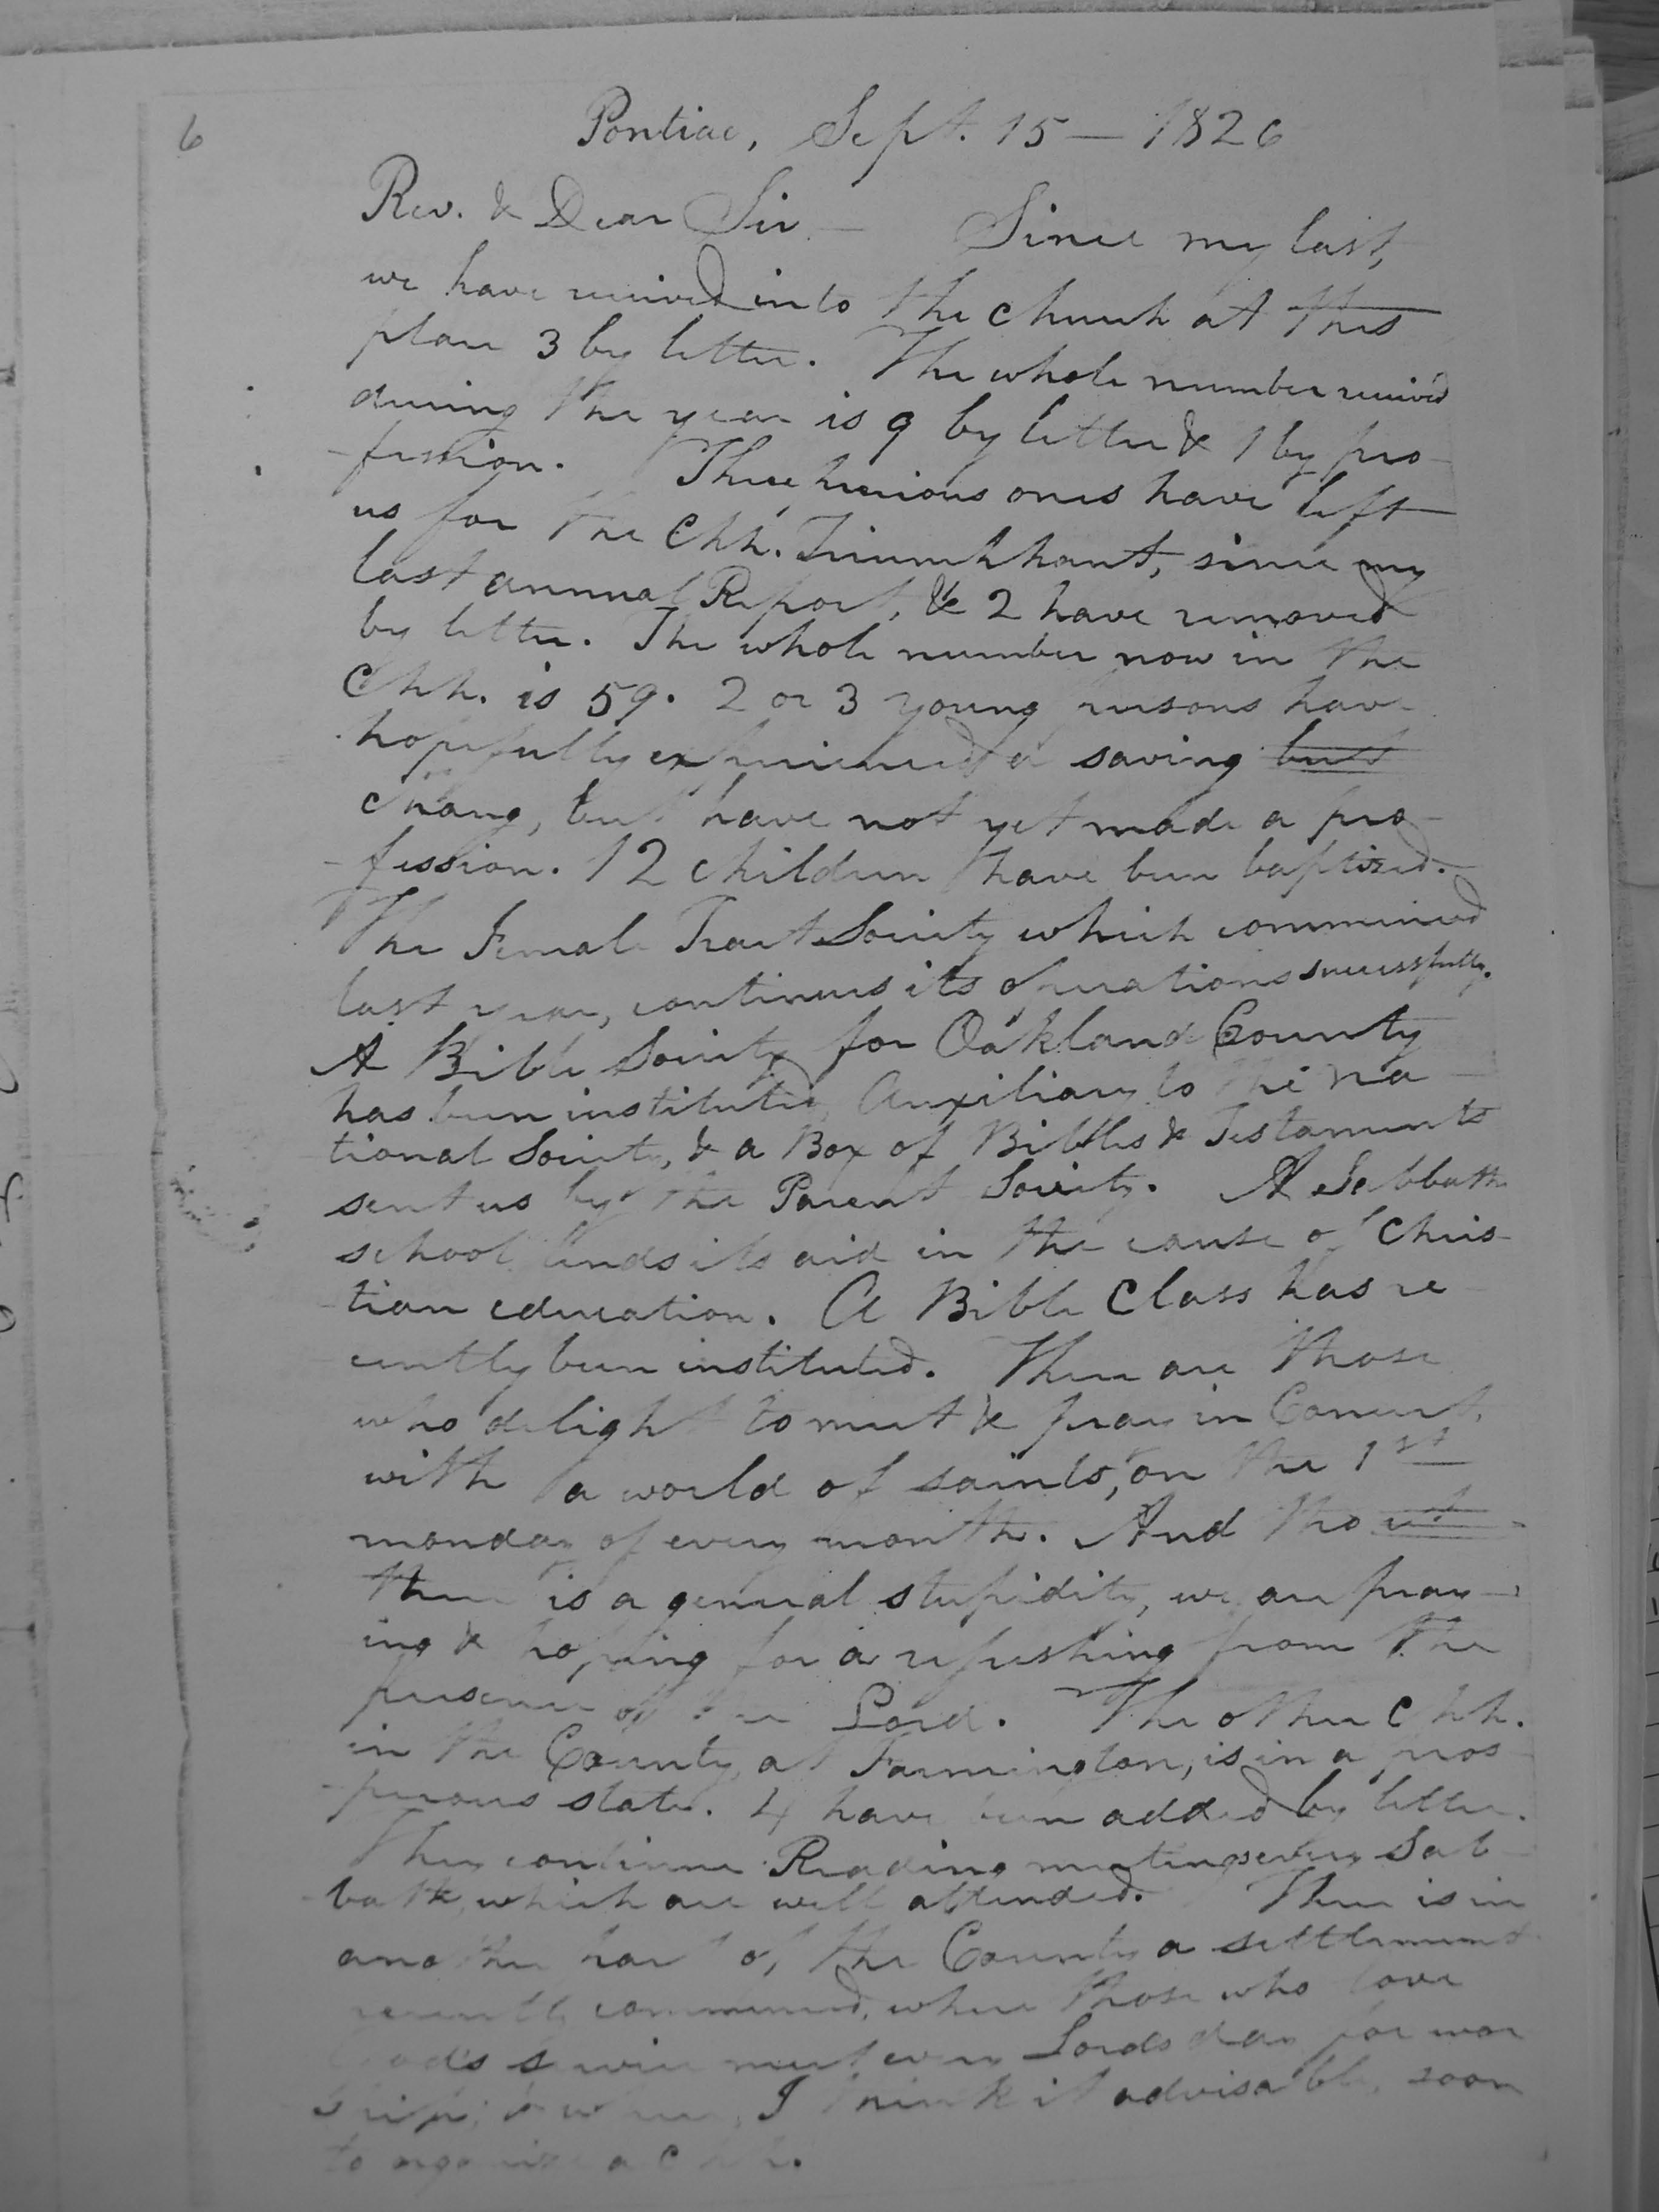 6
Pontiac, Sept. 15 — 1826
Rev. & Dear Sir — Since my last,
we have received into the church at this
place 3 by letter. The whole number receiv'd
during the year is 9 by letter & 1 by pro-
-fession. Three precious ones have left
us for the Chh. Triumphant, since my
last annual Report, & 2 have removed
by letter. The whole number now in the
Chh. is 59. 2 or 3 young persons have
hopefully experienced a saving but
change, but have not yet made a pro-
-fession. 12 children have been baptized.
The Female Tract Society which commenced
last year, continues its operations successfully.
A Bible Society for Oakland County
has been instituted, Auxiliary to the Na-
tional Society, & a Box of Bibles & Testaments
sent us by the Parent Society. A Sabbath
school lends its aid in the cause of Chris-
-tian education. A Bible Class has re-
cently been instituted. There are those
who delight to meet & pray in Concert,
with a world of saints, on the 1st
monday of every month. And tho
there is a general stupidity, we are pray-
ing & hoping for a refreshing from the
presence of the Lord. The other Chh.
in the County, at Farmington, is in a pros-
-perous state. 4 have been added by letter.
They continue Reading meetings every Sab-
bath, which are well attended. There is in
another part of the County a settlement
recently commenced, where those who love
God's service meet every Lords day for wor-
ship; & where, I think it advisable, soon
to organize a Chh.